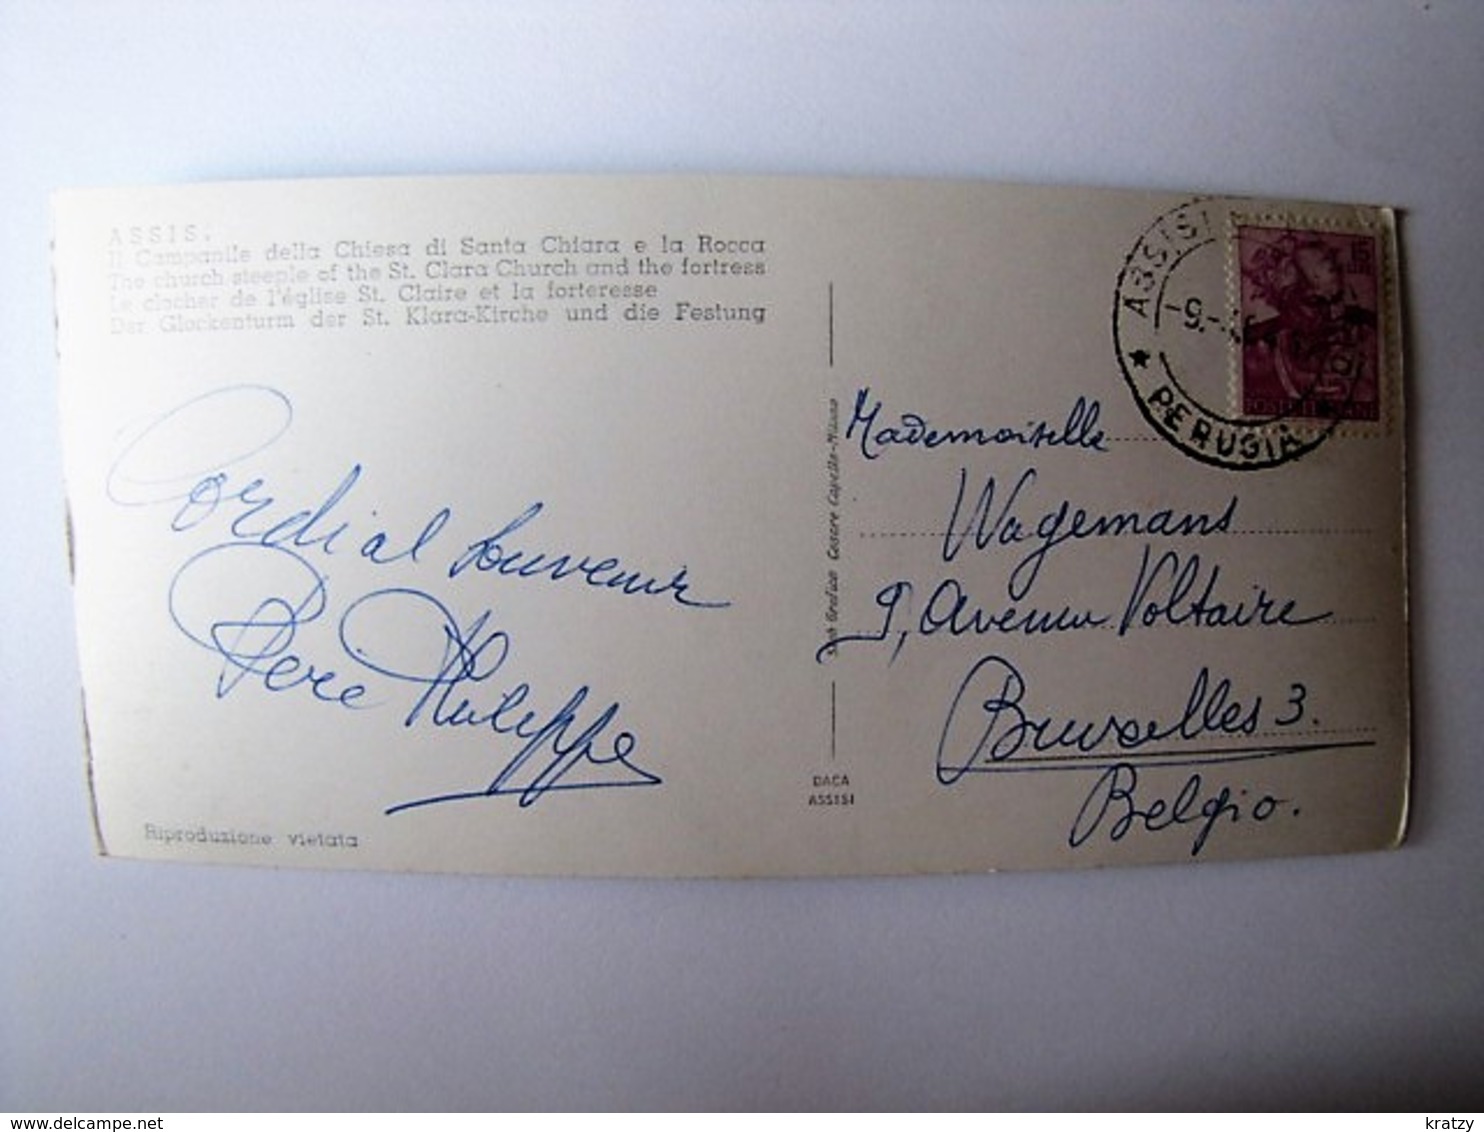 ASSISI
Il Campanile della Chiesa di Santa Chiara e la Rocca
The church steeple of the St. Clara Church and the fortress
Le clocher de l'église St. Claire et la forteresse
Der Glockenturm der St. Klara-Kirche und die Festung
Cordial Souvenir
Père Philippe
Riproduzione vietata
Cesare Capello-Milano
DACA
ASSISI
ASSISI
PERUGIA
15
Mademoiselle
Wagemans
9, Avenue Voltaire
Bruxelles 3.
Belgio.
delcampe.net
kratzy